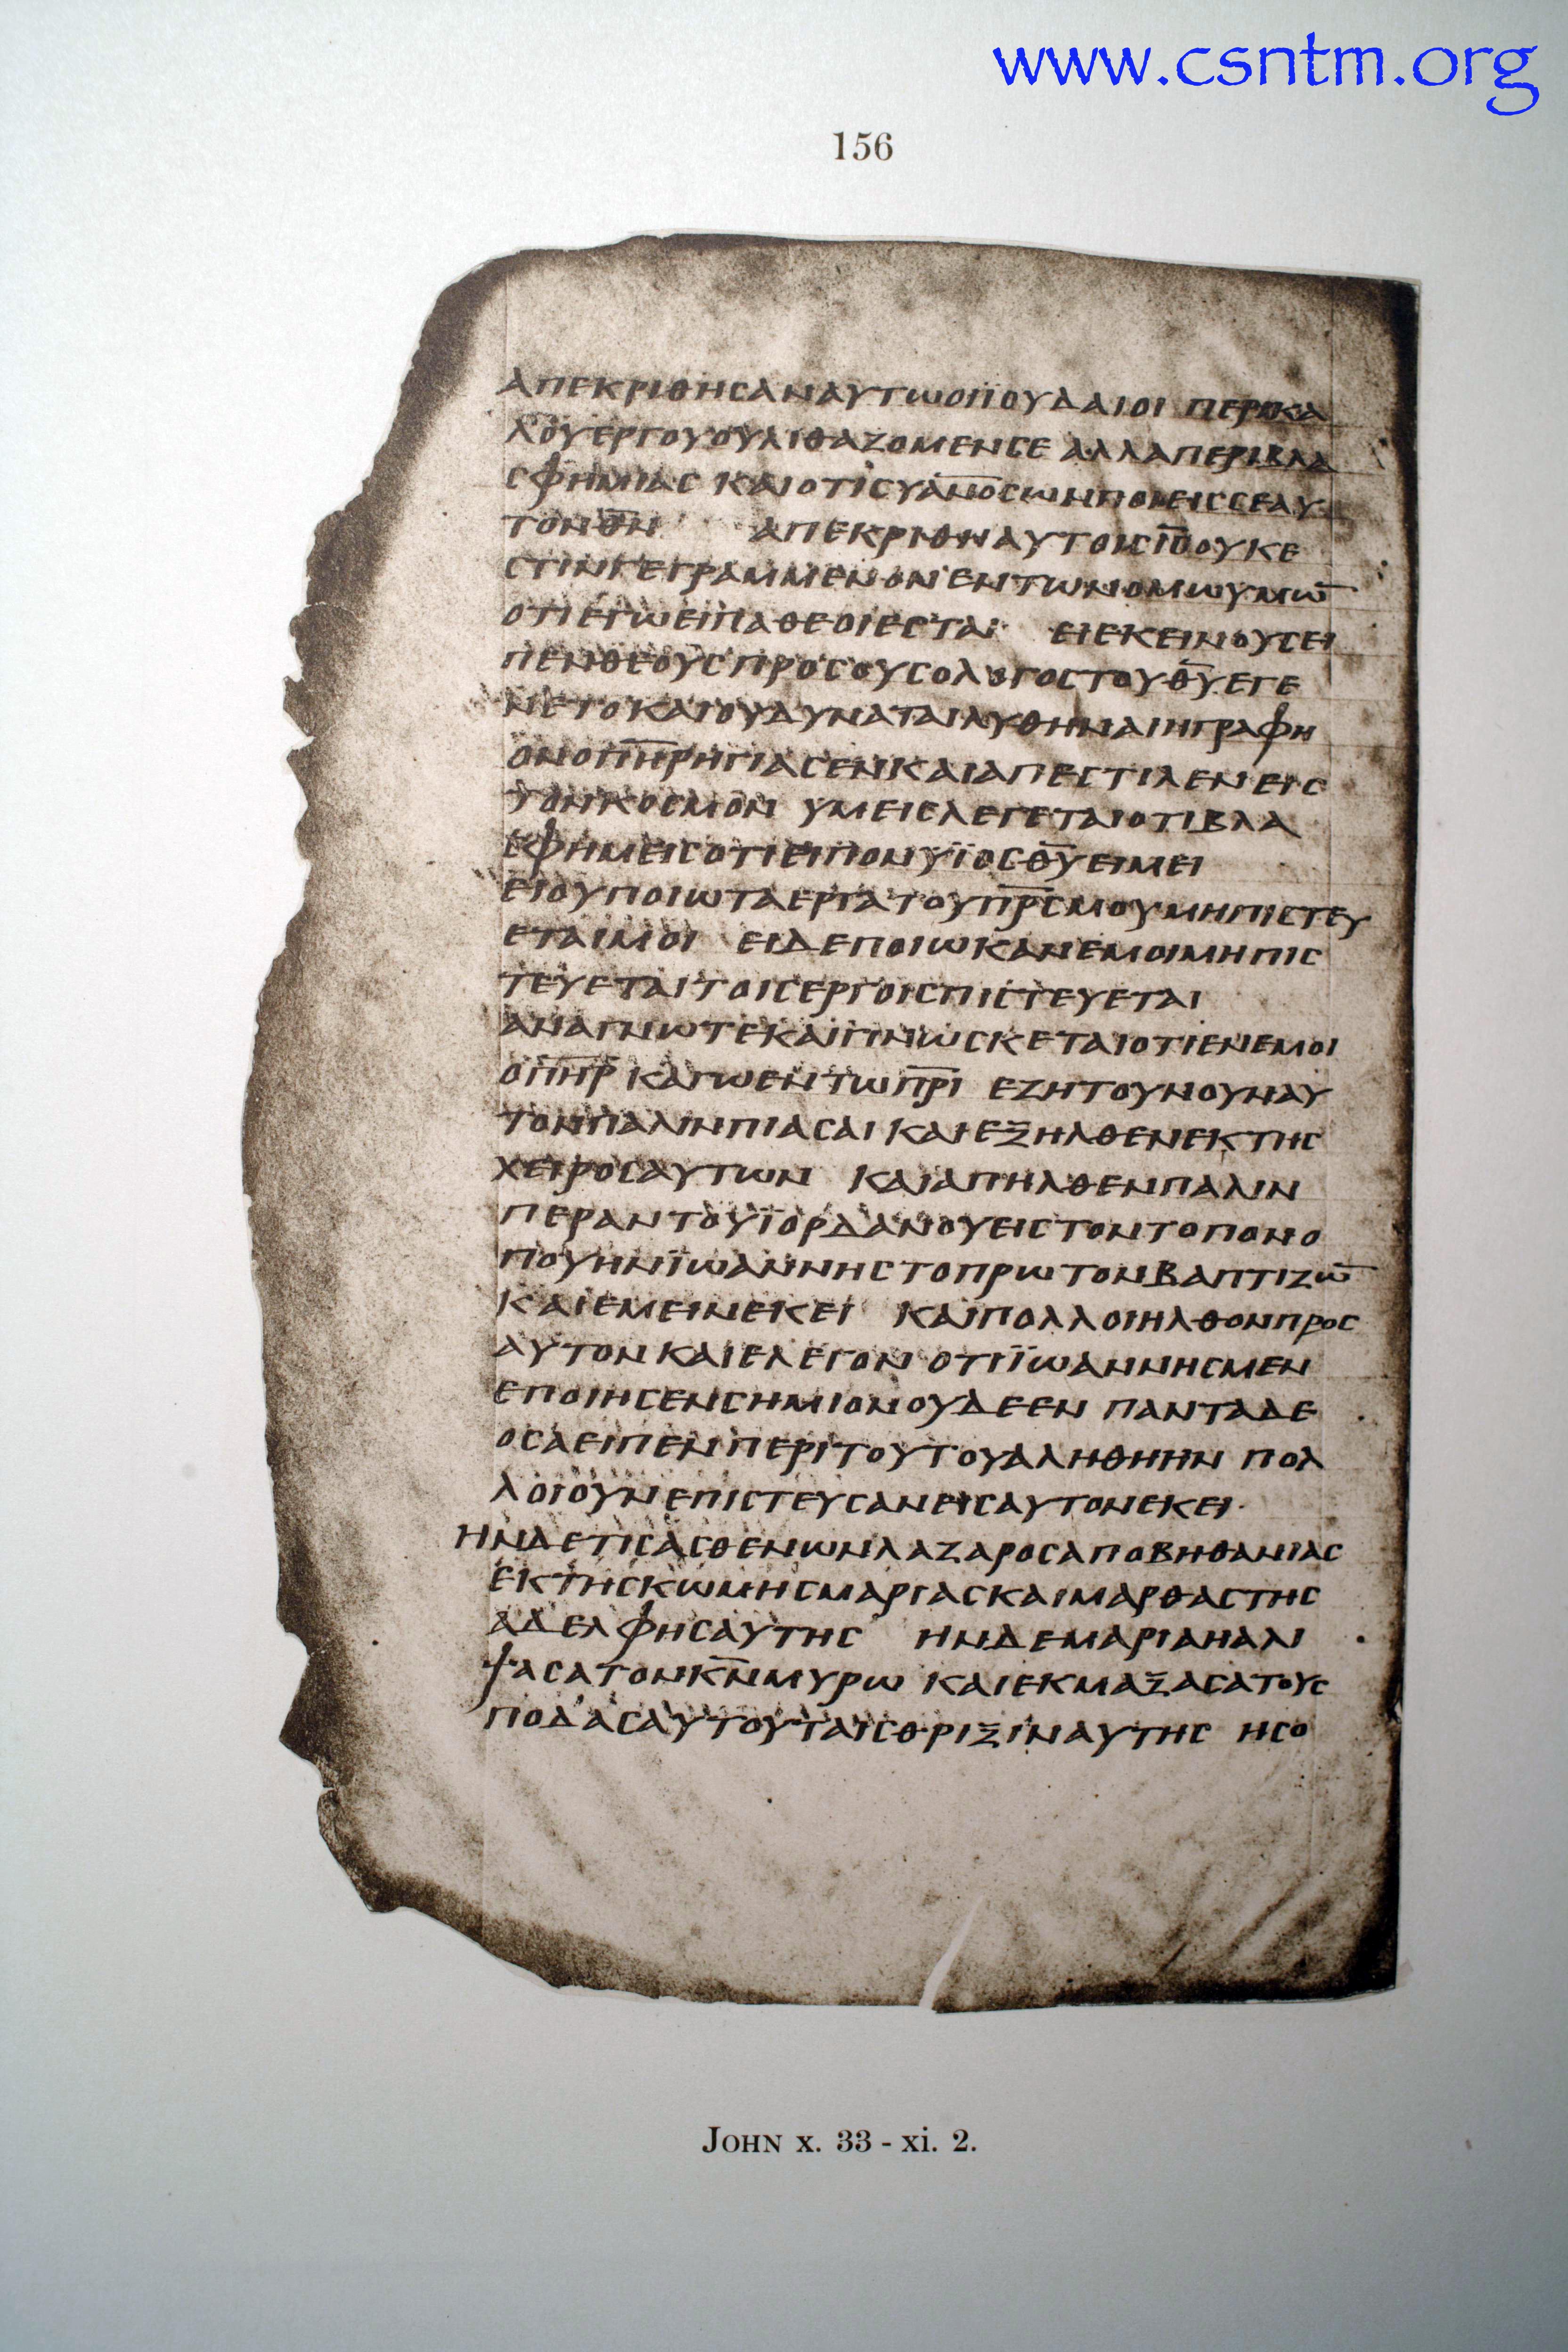 www.csntm.org
156
ΑΠΕΚΡΙΘΗϹΑΝΑΥΤΩΟΙΪΟΥΔΑΙΟΙ ΠΕΡΙΚΑ
ΛΟΥΕΡΓΟΥΟΥΛΙΘΑΖΟΜΕΝϹΕ ΑΛΛΑΠΕΡΙΒΛΑ
ϹΦΗΜΙΑϹ ΚΑΙΟΤΙϹΥΑ̅Ν̅Ο̅ϹΩΝΠΟΙΕΙϹϹΕΑΥ
ΤΟΝΘ̅Ν̅ ΑΠΕΚΡΙΘΗΑΥΤΟΙϹΙ̅Ϲ̅ΟΥΚΕ
ϹΤΙΝΓΕΓΡΑΜΜΕΝΟΝΕΝΤΩΝΟΜΩΥΜΩ̅
ΟΤΙΕΓΩΕΙΠΑΘΕΟΙΕϹΤΑΙ ΕΙΕΚΕΙΝΟΥϹΕΙ
ΠΕΝΘΕΟΥϹΠΡΟϹΟΥϹΟΛΟΓΟϹΤΟΥΘ̅Υ̅ΕΓΕ
ΝΕΤΟΚΑΙΟΥΔΥΝΑΤΑΙΛΥΘΗΝΑΙΗΓΡΑΦΗ
ΟΝΟΠ̅Η̅Ρ̅ΗΓΙΑϹΕΝΚΑΙΑΠΕϹΤΙΛΕΝΕΙϹ
ΤΟΝΚΟϹΜΟΝ ΥΜΕΙϹΛΕΓΕΤΑΙΟΤΙΒΛΑ
ϹΦΗΜΕΙϹΟΤΙΕΙΠΟΝΥΪΟϹΘ̅Υ̅ΕΙΜΕΙ
ΕΙΟΥΠΟΙΩΤΑΕΡΓΑΤΟΥΠ̅Ρ̅Ϲ̅ΜΟΥΜΗΠΙϹΤΕΥ
ΕΤΑΙΜΟΙ ΕΙΔΕΠΟΙΩΚΑΝΕΜΟΙΜΗΠΙϹ
ΤΕΥΕΤΑΙΤΟΙϹΕΡΓΟΙϹΠΙϹΤΕΥΕΤΑΙ
ΑΝΑΓΝΩΤΕΚΑΙΓΙΝΩϹΚΕΤΑΙΟΤΙΕΝΕΜΟΙ
ΟΠ̅Η̅Ρ̅ ΚΑΓΩΕΝΤΩΠ̅Ρ̅Ι̅ ΕΖΗΤΟΥΝΟΥΝΑΥ
ΤΟΝΠΑΛΙΝΠΙΑϹΑΙ ΚΑΙΕΞΗΛΘΕΝΕΚΤΗϹ
ΧΕΙΡΟϹΑΥΤΩΝ ΚΑΙΑΠΗΛΘΕΝΠΑΛΙΝ
ΠΕΡΑΝΤΟΥΪΟΡΔΑΝΟΥΕΙϹΤΟΝΤΟΠΟΝΟ
ΠΟΥΗΝΪΩΑΝΝΗϹΤΟΠΡΩΤΟΝΒΑΠΤΙΖΩ̅
ΚΑΙΕΜΕΙΝΕΚΕΙ ΚΑΙΠΟΛΛΟΙΗΛΘΟΝΠΡΟϹ
ΑΥΤΟΝΚΑΙΕΛΕΓΟΝΟΤΙΪΩΑΝΝΗϹΜΕΝ
ΕΠΟΙΗϹΕΝϹΗΜΙΟΝΟΥΔΕΕΝ ΠΑΝΤΑΔΕ
ΟϹΑΕΙΠΕΝΠΕΡΙΤΟΥΤΟΥΑΛΗΘΗΗΝ ΠΟΛ
ΛΟΙΟΥΝΕΠΙϹΤΕΥϹΑΝΕΙϹΑΥΤΟΝΕΚΕΙ·
ΗΝΔΕΤΙϹΑϹΘΕΝΩΝΛΑΖΑΡΟϹΑΠΟΒΗΘΑΝΙΑϹ
ΕΚΤΗϹΚΩΜΗϹΜΑΡΙΑϹΚΑΙΜΑΡΘΑϹΤΗϹ
ΑΔΕΛΦΗϹΑΥΤΗϹ ΗΝΔΕΜΑΡΙΑΗΑΛΙ
ΨΑϹΑΤΟΝΚ̅Ν̅ΜΥΡΩ ΚΑΙΕΚΜΑΞΑϹΑΤΟΥϹ
ΠΟΔΑϹΑΥΤΟΥΤΑΙϹΘΡΙΞΙΝΑΥΤΗϹ ΗϹΟ
JOHN x. 33 - xi. 2.